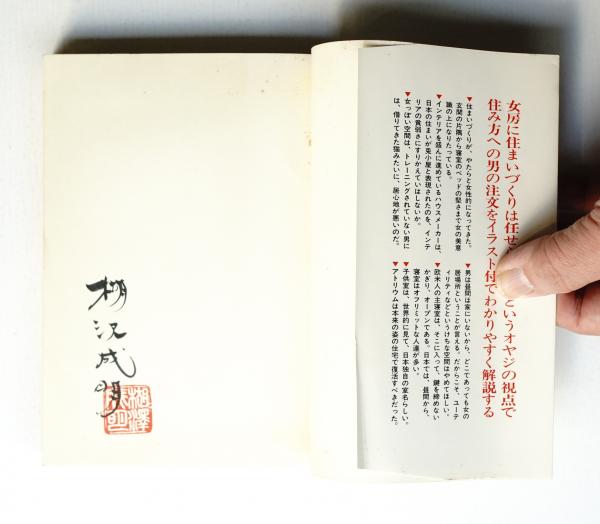 女房に住まいづくりは任せ
というオヤジの視点で
住み方への男の注文をイラスト付でわかりやすく解説する
▼住まいづくりが、やたらと女性的になってきた。
玄関の片隅から寝室のベッドの堅さまで女の美意
識の上になりたっている。
▼インテリアを盛んに進めているハウスメーカーは、
日本の住まいが兎小屋と表現されたのを、インテ
リアの貧弱さにすりかえていはしないか。
▼女っぽい空間は、トレーニングされていない男に
は、借りてきた猫みたいに、居心地が悪いのだ。
▼男は昼間は家にいないから、どこであっても女の
居場所ということが言える。だからこそ、ユーテ
ィリティなどというけちな空間はやめてほしい。
▼欧米人の主寝室は、そこに入って、鍵を締めない
かぎり、オープンである。日本では、昼間から、
寝室はオフリミットな人達が多い。
▼子供室は、世界的に見て、日本独自の室名らしい。
▼アトリウムは本来の姿の住宅で復活すべきだった。
柳沢成明